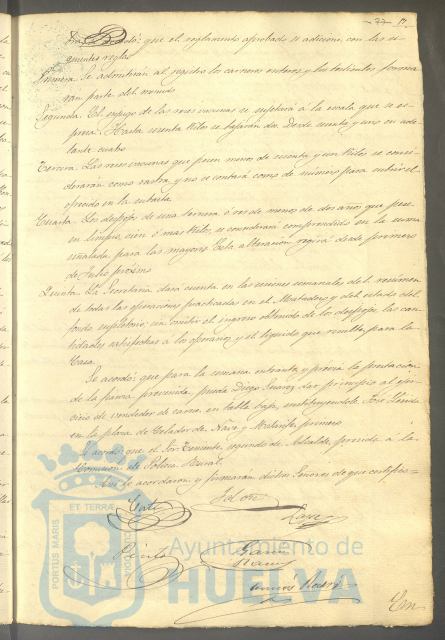 que el reglamento aprobado se adicione con las si-
guientes reglas
Primera. Se admitirán al registro los carneros enteros y los
parte del menudo
Segunda. El de las reses vacunas se sujetará á la escala que se es-
presa. Hasta cuenta kilos se bajarán dos. Desde cuenta y uno en ade-
lante cuatro
Tercera. Las reses vacunas que pesen menos de cuenta y un kilos se consi-
derarán como y no se contará como de número para cubrir el
ofrecido en la subasta
Cuarta. Los despojos de una ternera ó res de menos de dos años que pese
en limpio, cien ó mas kilos, se considerán comprendidos en la suma
señalada para las mayores. Esta alteración regirá desde primero
de Julio próximo
Quinta. La Secretaría dará cuenta en las sesiones semanales del resumen
de todas las operaciones practicadas en el Matadero y del estado del
fondo supletorio; sin omitir el ingreso obtenido de los despojos, las can-
tidades satisfechas á los operarios y el líquido que resulta para la
Casa.
Se acordó: que para la semana entrante y previa la prestación
de la fianza prevenida, pueda Diego Suarez dar principio al ejer-
cicio de vendedor de carne en tabla baja, sustituyendole José
en la plaza de Celador de Nave y primero
Se acordó que el Sor Teniente segundo de Alcalde, presida á la
Comisión de Policia Rural.
Así lo acordaron y firmarán dichos Señores de que certifico=
ET TERRÆ
PORTUS MARIS
CUSTODIA
Ayuntamiento de
HUELVA